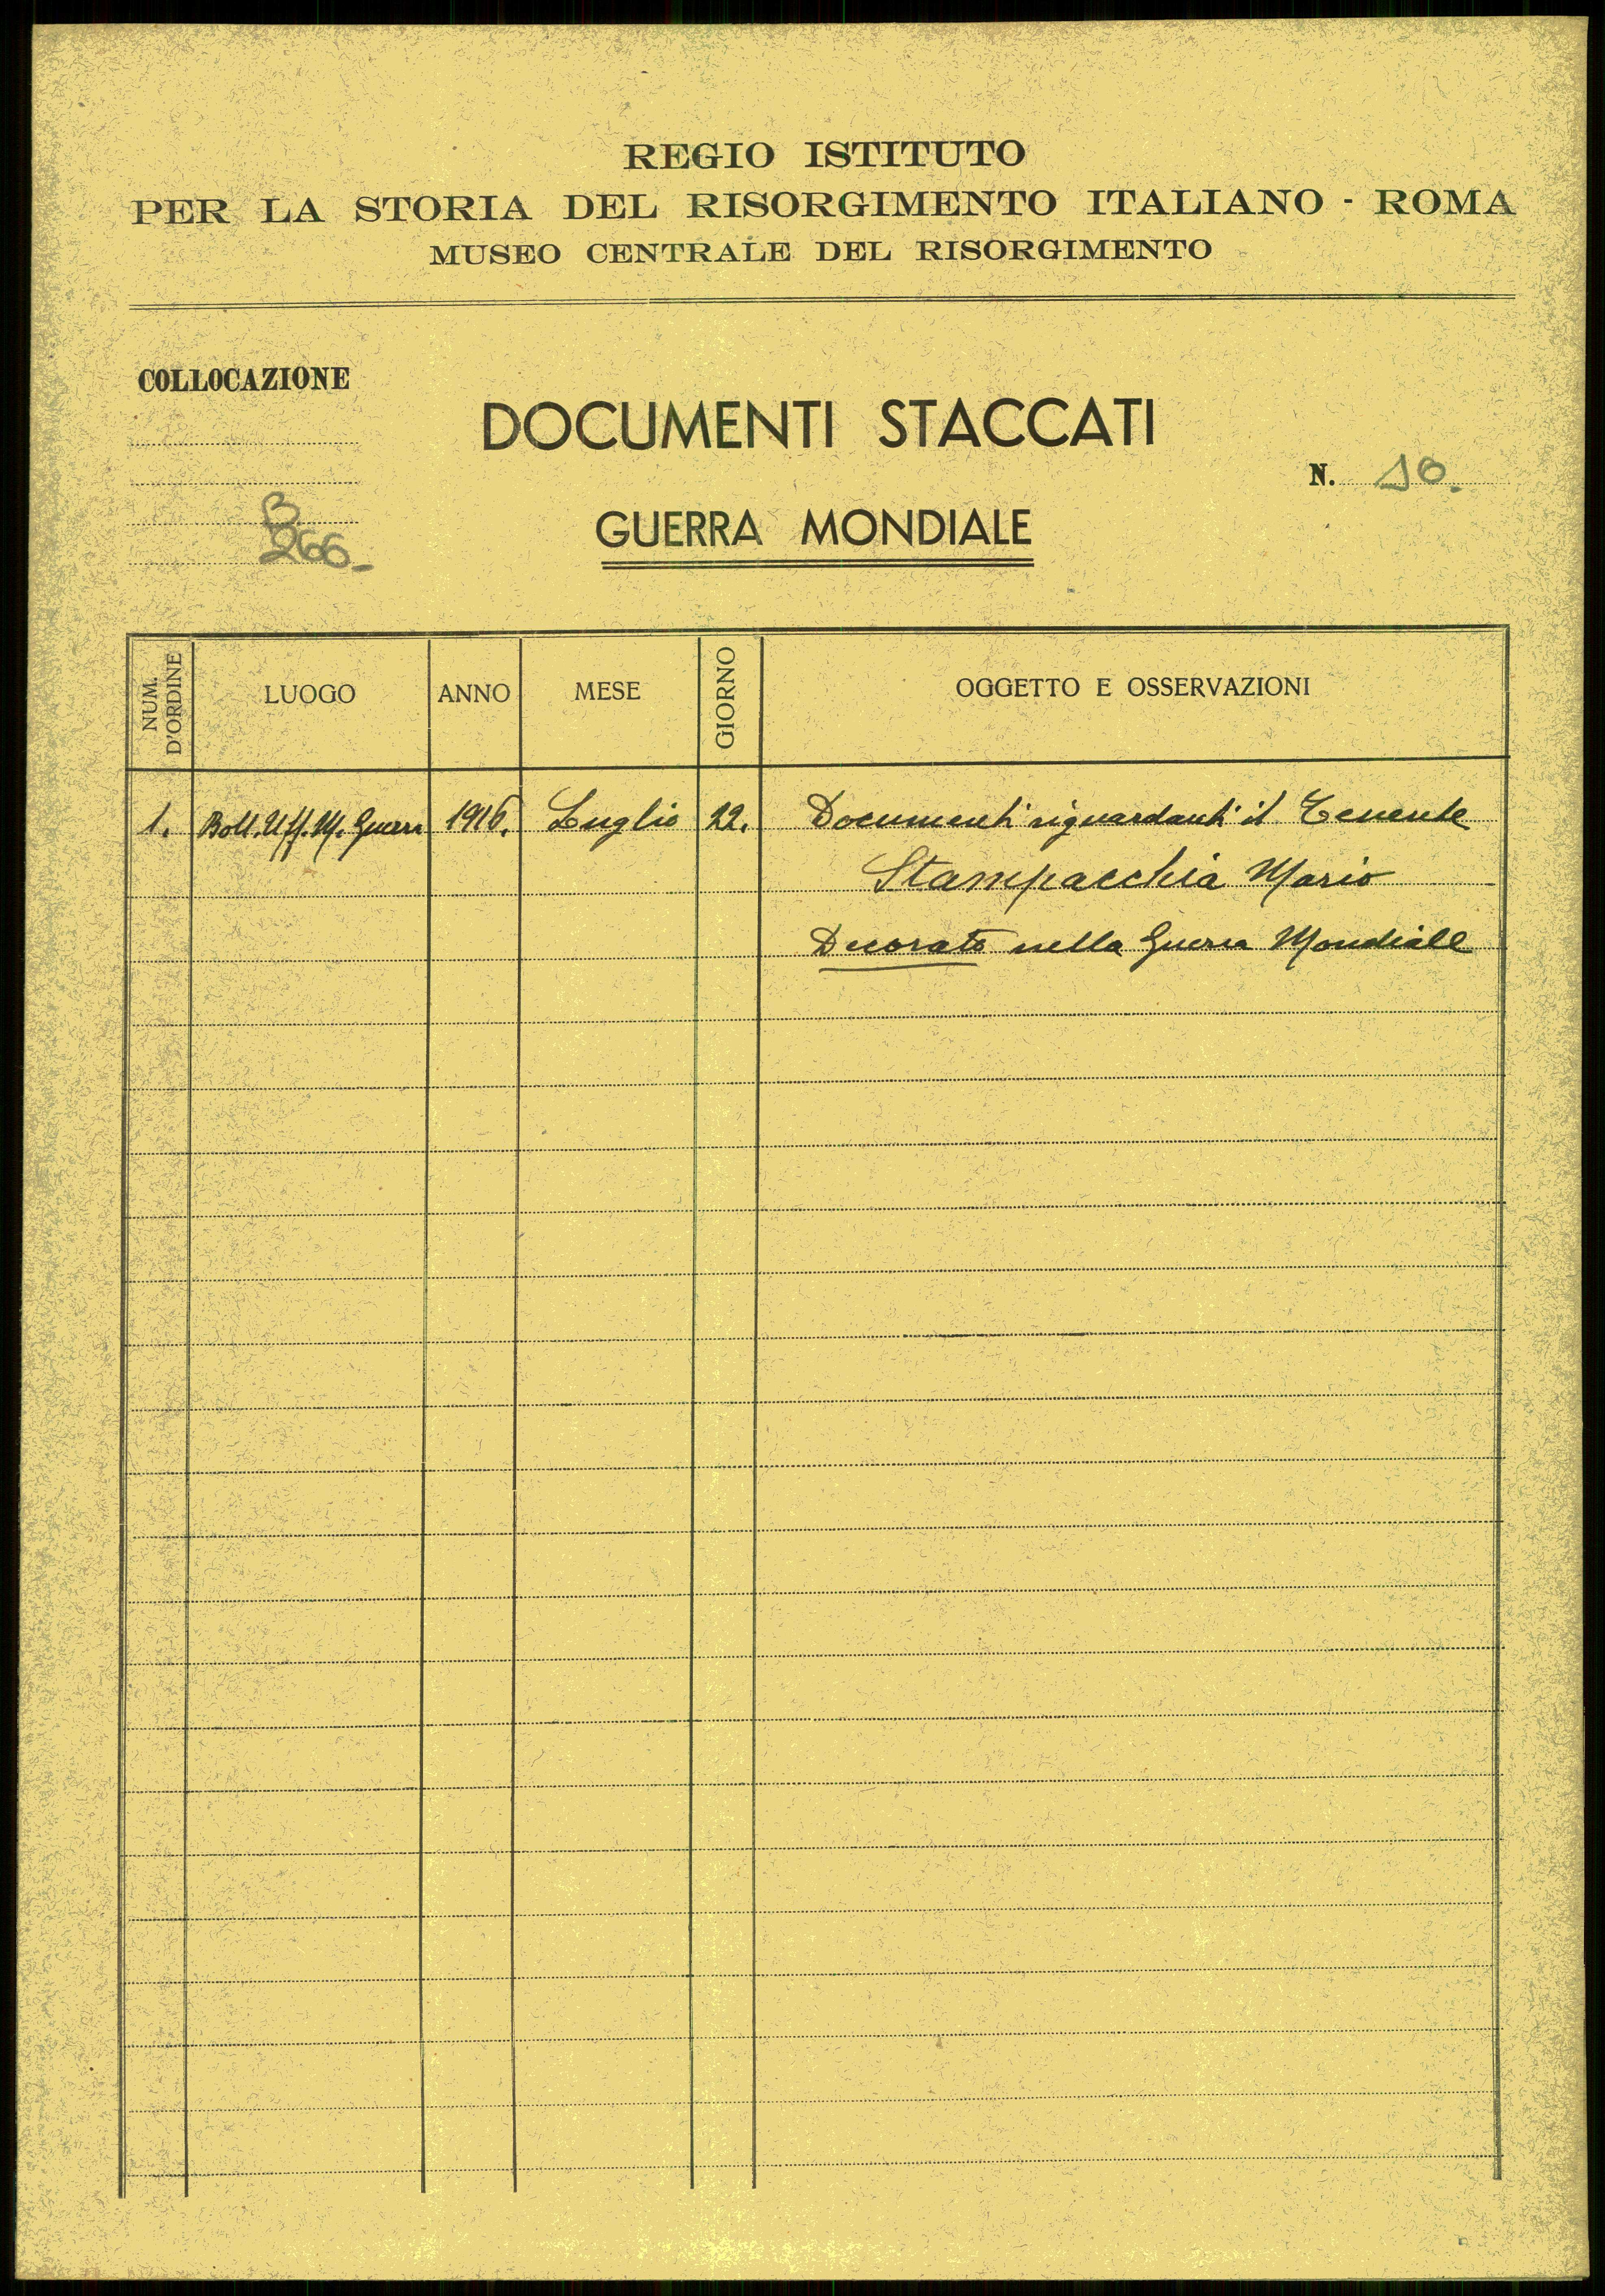 REGIO ISTITUTO
PER LA STORIA DEL RISORGIMENTO ITALIANO - ROMA
MUSEO CENTRALE DEL RISORGIMENTO
COLLOCAZIONE
B.
266-
DOCUMENTI STACCATI
N. 10.
GUERRA MONDIALE
NUM. D'ORDINE LUOGO ANNO MESE GIORNO OGGETTO E OSSERVAZIONI
1. Boll. Uff. M. Guerra 1916. Luglio 22. Documenti riguardanti il Tenente
Stampacchia Mario
Decorato nella Guerra Mondiale